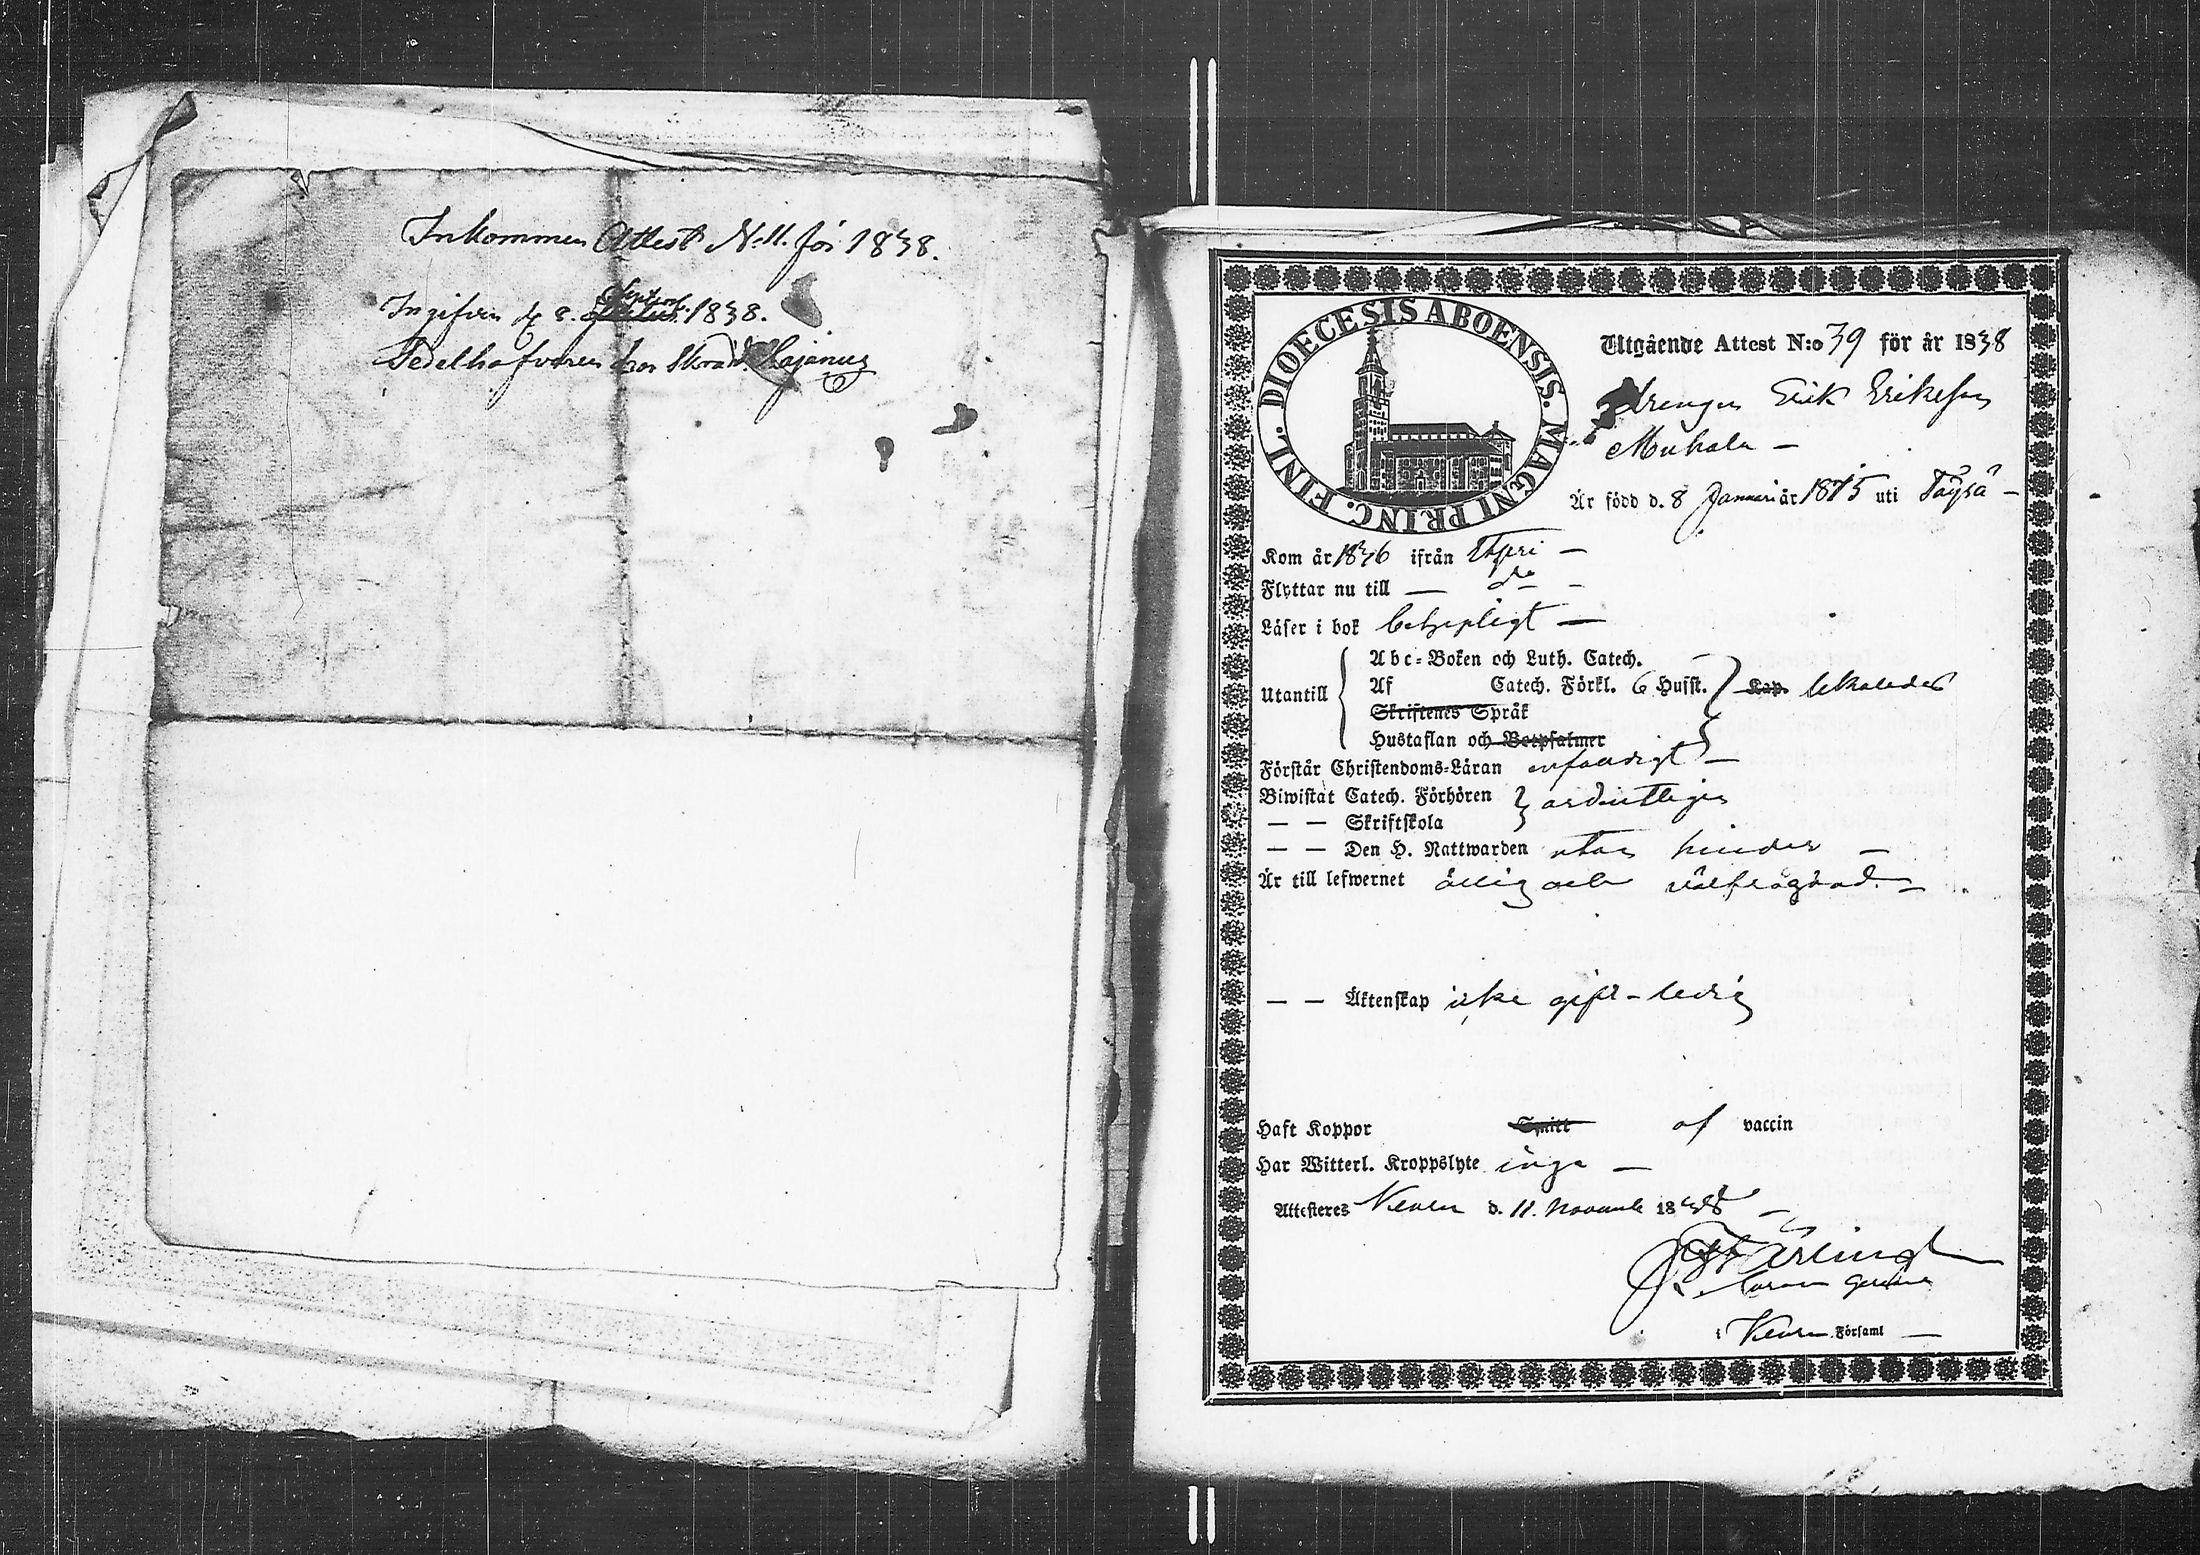 Inkommen Attest N:11. för 1838.
Septemb
Ingifven d. 8. 1838.
Pedelhafvaren hos Skrädd. Kajanus
DIOECESIS ABOENSIS. MAGNI PRINC. FINL.
Utgående Attest N:o 39 för år 1838
Drengen Erik Eriksson
Mukala —
Är född d. 8 Januari år 1815 uti Töysä —
Kom år 1836 ifrån Etseri —
Flyttar nu till — do —
Läser i bok begripligt —
Utantill
Abc-Boken och Luth. Catech. —
Af Catech. Förkl. 6 Husst. Kap.
Skriftenes Språk
Hustaflan och Botpsalmer
Förstår Christendoms-Läran enfaldigt —
Biwistat Catech. Förhören ordentligen
— — Skriftskola
— — Den H. Nattwarden utan hinder —
Är till lefwernet ärlig och välfrägdad. —
— — Äktenskap icke gift - ledig
Haft Koppor Smitt af vaccin
Har Witterl. Kroppslyte inga —
Attesteres Keuru d. 11. Novemb 1838 —
i Keuru Församl —